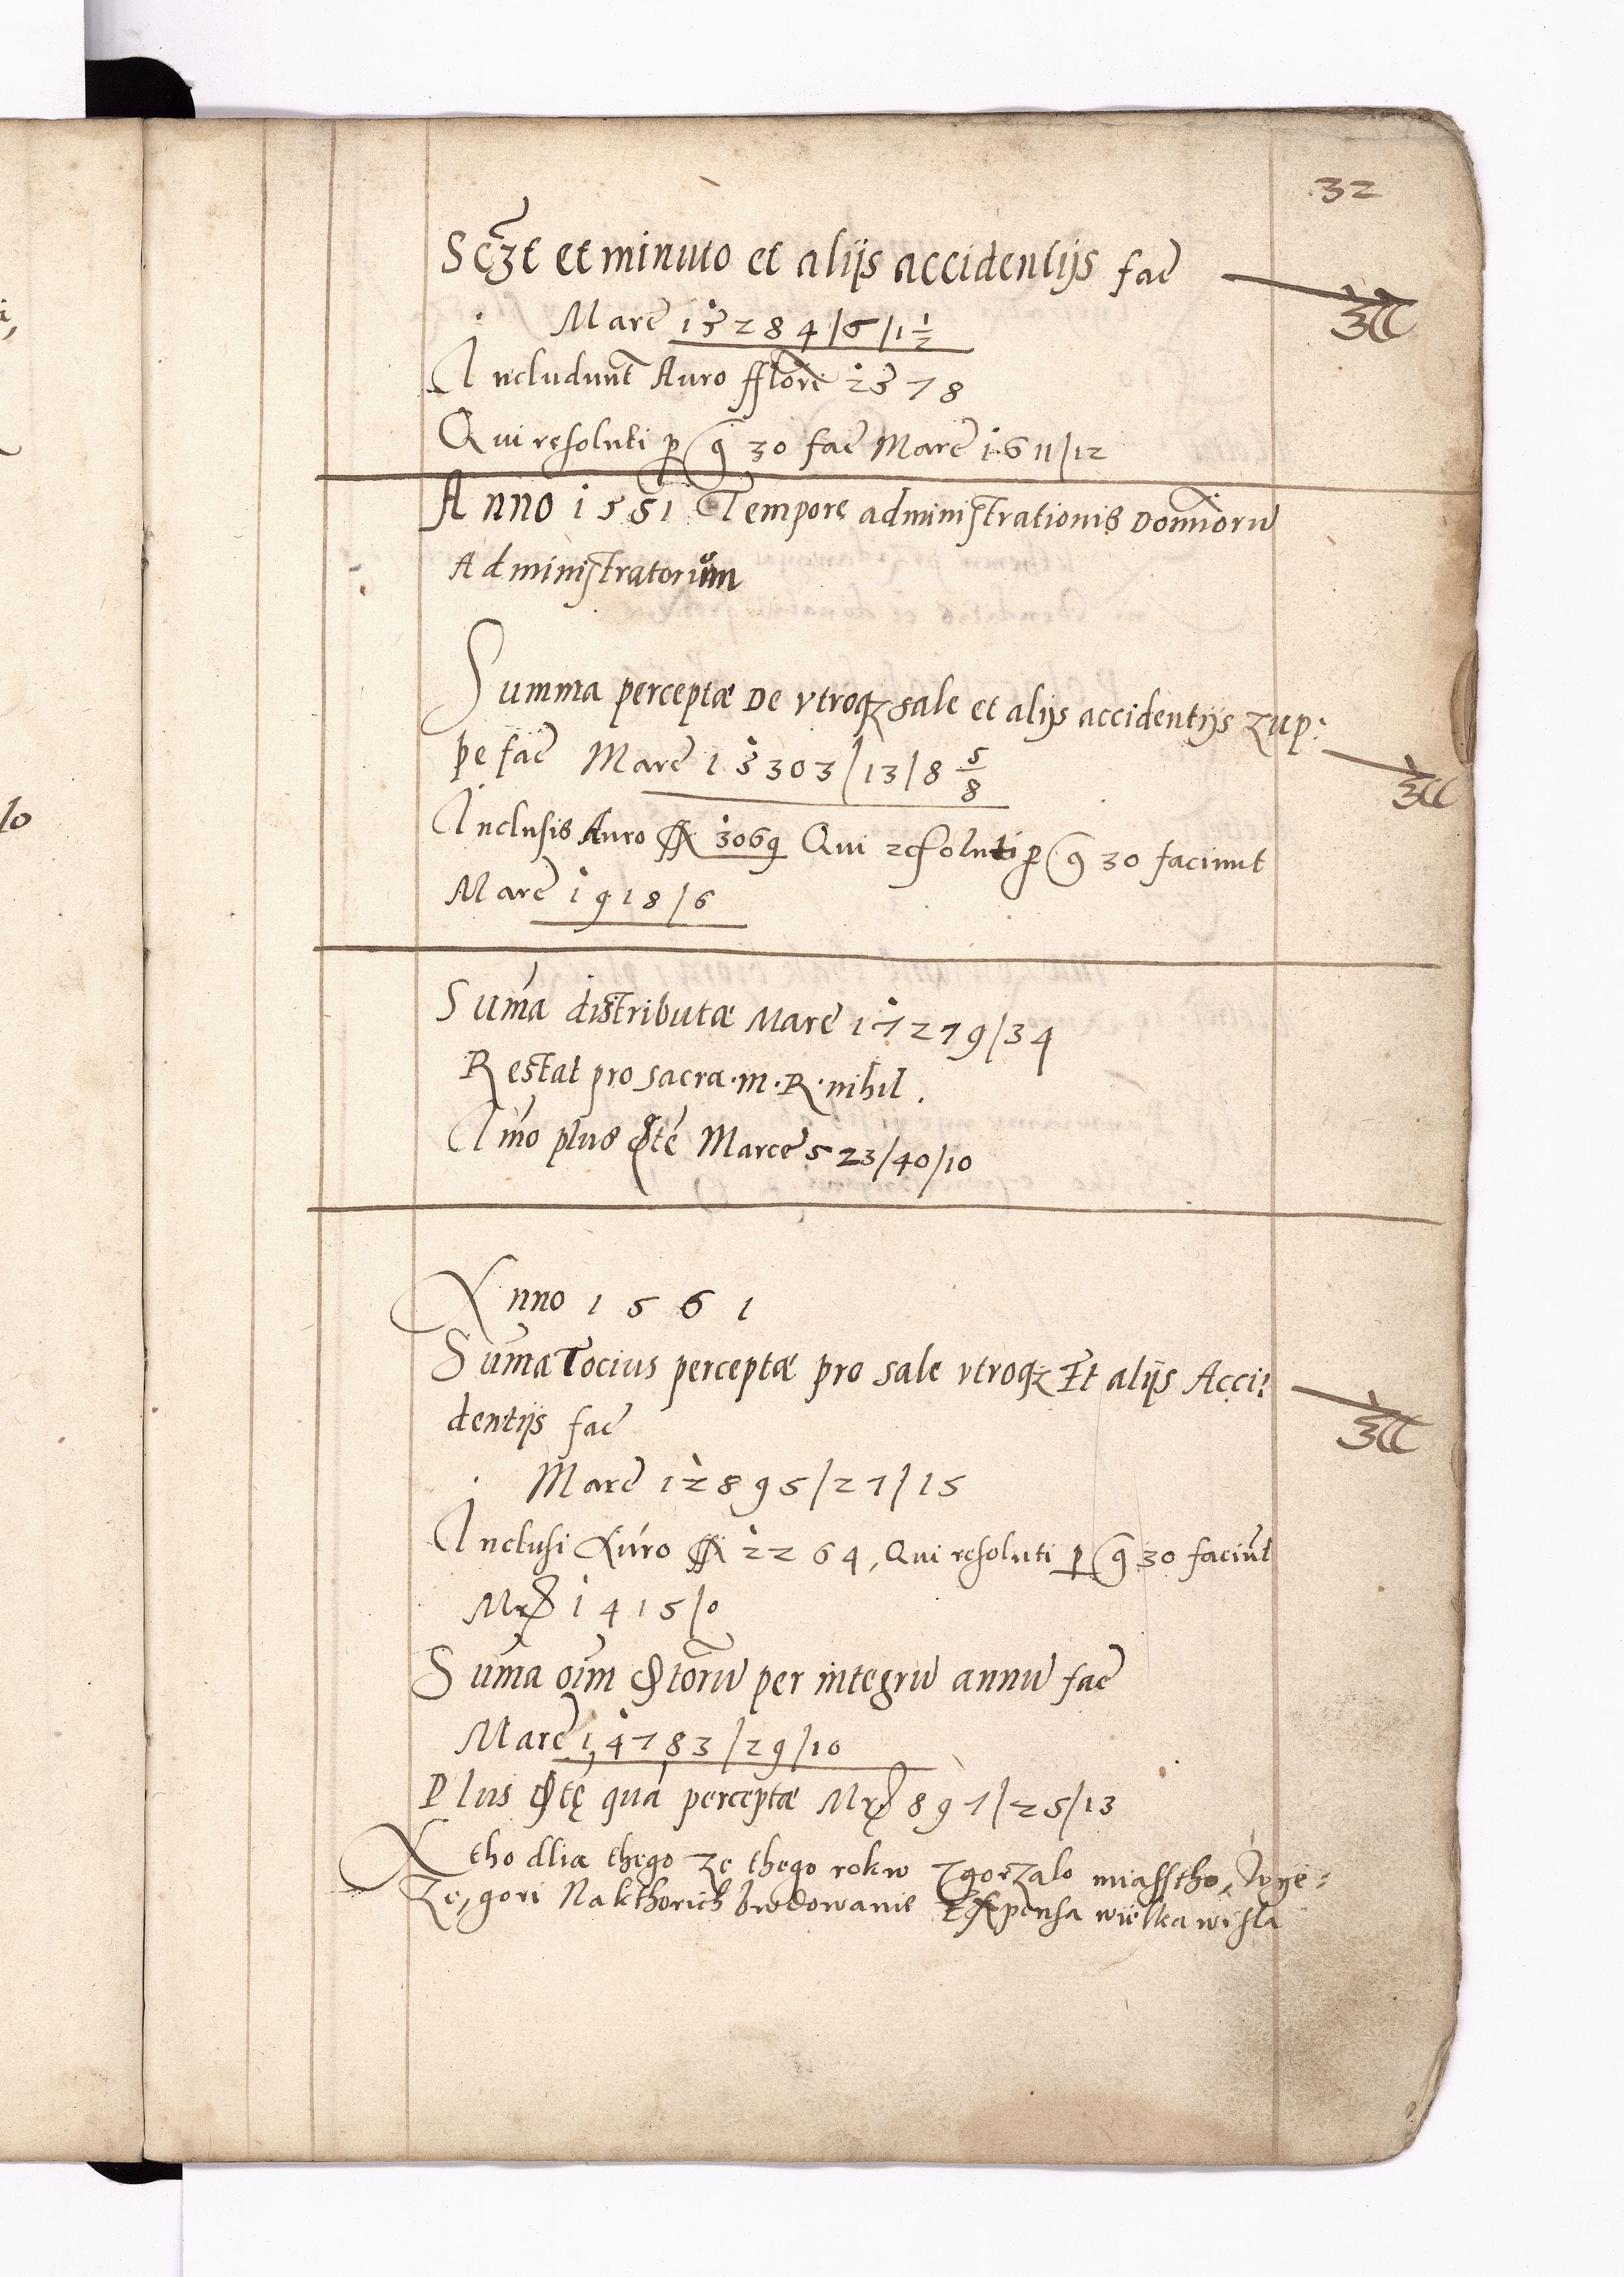 32
Scꝫt et minuto et alijs accidentijs fac̄
Marc̄ 15284/6/1½
Includunt̄ Auro fflore̅ 2578
Qui resoluti p g̃ 30 fac̄ Marc̄ 1611/12
Anno 1551 Tempore administrationis Domĩorū
Administratorum
Summa perceptæ De vtroqꝫ sale et alijs accidentijs zup:
pe fac̄ Marc̄ 15303/13/8 5/8
Inclusis Auro ff 3069 Qui resoluti p g̃ 30 faciunt
Marc̄ 1918/6
Sum̄a distributæ Marc̄ 17279/34
Restat pro sacra · m · R · nihil .
Im̄o plus Marce 523/40/10
Anno 1561
Sum̄a Tocius perceptæ pro sale vtroqꝫ Et alijs Acci:
dentijs fac̄
Marc̄ 12895/27/15
Inclusi Auro ff 2264, Qui resoluti p g̃ 30 faciūt
Mrc̄ 1415/0
Sum̄a oīm per integrū annū fac̄
Marc̄ 14783/29/10
Plus quā perceptæ Mrc̄ 897/25/13
A tho dlia thego ze thego rokw zgorzalo miasstho,
ze, gori Na kthorich bvdowanie Expensa wielka wisla